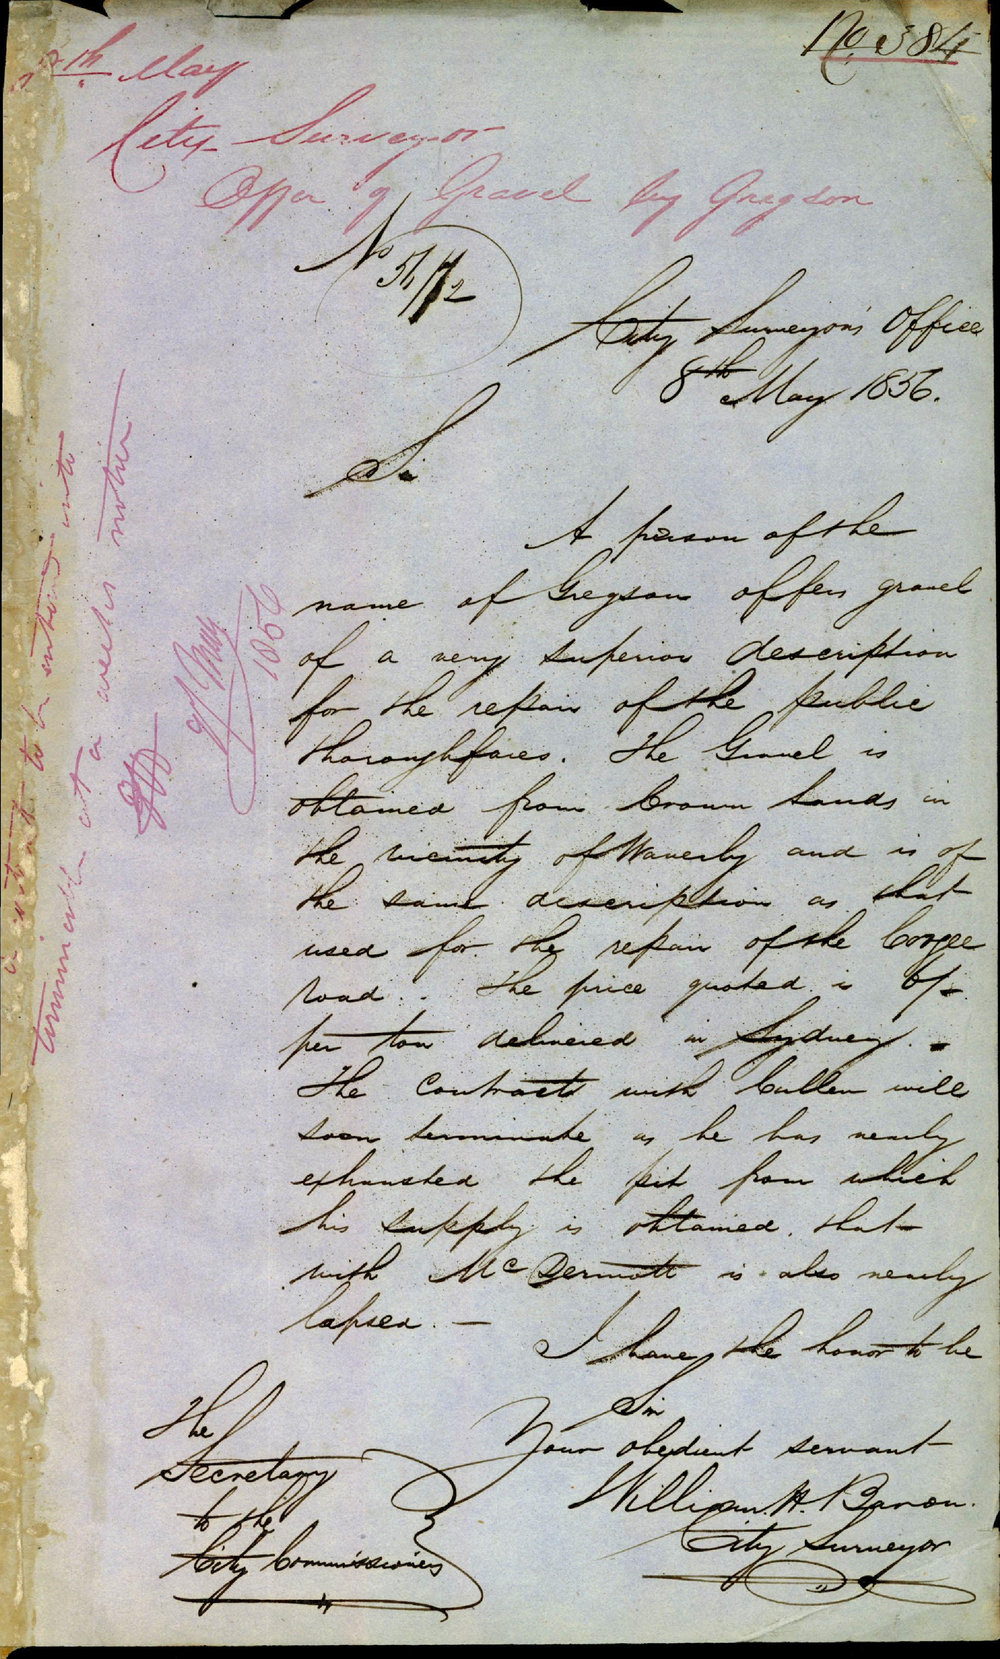 No 384
th May
City Surveyor
Offer of Gravel by Gregson
No 56/72
City Surveyor's Office
8th May 1856.
Sir
A person of the
name of Gregson offers gravel
of a very superior description
for the repair of the public
thoroughfares. The Gravel is
obtained from Crown Lands in
the vicinity of Waverly and is of
the same description as that
used for the repair of the Coogee
road. The price quoted is 6/-
per ton delivered in Sydney. -
The Contracts with Cullen will
soon terminate as he has nearly
exhausted the pit from which
his supply is obtained. that
with McDermott is also nearly
lapsed. —
I have the honor to be
Sir
Your obedient servant
William H. Baron.
City Surveyor
The
Secretary
to the
City Commissioners
to be entering into
terminable at a weeks notice
May
1856